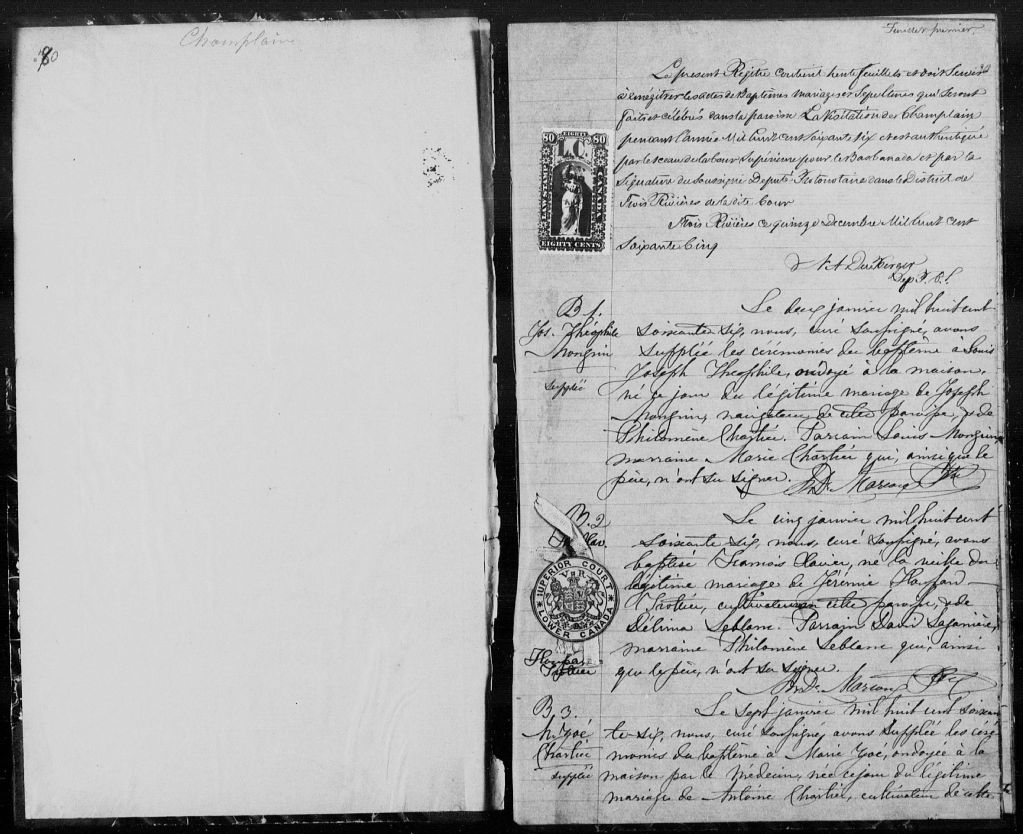 Champlain
Feuillet premier.
Le présent Régitre contient trente feuillets et doit servir
à enrégitrer les actes de Baptêmes mariages et Sepultures qui seront
faits et célébrés dans la paroisse La Visitation de Champlain
pendant l'année Mil huit cent Soixante Six et est authentiqué
par le sceau de la Cour Supérieure pour le Bas Canada et par la
Signature du Soussigné Député Protonotaire dans le District de
Trois Rivières de la dite Cour
Trois Rivières ce quinze Decembre Mil huit cent
Soixante Cinq
Dep P. C. S.
EIGHTY
80 L.C. 80
LAW STAMP
EIGHTY CENTS
B 1.
Jos. Théophile
Mongrin
supplée
Le deux janvier mil huit cent
soixante six, nous, curé soussigné, avons
supplée les cérémonies du baptême à Louis
Joseph Théophile, ondoyé à la maison,
né ce jour du légitime mariage de Joseph
Mongrin, navigateur de cette paroisse, & de
Philomène Chartier. Parrain Louis Mongrin,
marraine Marie Chartier qui, ainsi que le
père, n'ont su signer.
Marcoux Ptre
B. 2
Xav.
SUPERIOR COURT
V R
LOWER CANADA
Frottier
Le cinq janvier mil huit cent
soixante six, nous, curé soussigné, avons
baptisé François Xavier, né la veille du
légitime mariage de Jérémie
Frottier, cultivateur en cette paroisse, & de
Délima Leblanc. Parrain David Lajanière,
marraine Philomène Leblanc qui, ainsi
que le père, n'ont su signer.
Marcoux Ptre
B 3.
M. Zoé
Chartier
supplée
Le sept janvier mil huit cent soixan
te six, nous, curé soussigné, avons supplée les céré
monies du baptême à Marie Zoé, ondoyée à la
maison par le Médecin, née ce jour du légitime
mariage de Antoine Chartier, cultivateur de cette